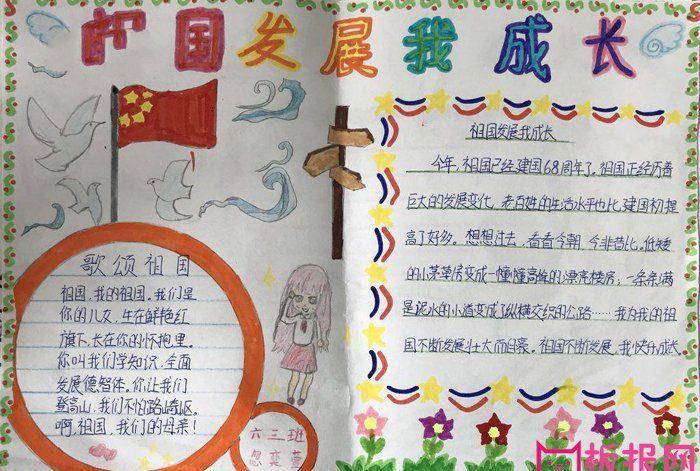 祖国发展我成长
歌颂祖国
祖国,我的祖国。我们是
你的儿女,生在鲜艳红
旗下,长在你的怀抱里。
你叫我们学知识,全面
发展德智体。你让我们
登高山,我们不怕路崎岖。
啊,祖国,我们的母亲!
六三班
祖国发展我成长
今年,祖国已经建国68周年了。祖国正经历着
巨大的发展变化,老百姓的生活水平也比建国初提
高了好多。想想过去,看看今朝,今非昔比。低矮
的小茅草房变成一幢幢高耸的小漂亮楼房;一条条满
是泥水的小道变成了纵横交织的公路……我为我的祖
国不断发展壮大而自豪。祖国不断发展,我快乐成长
板报网